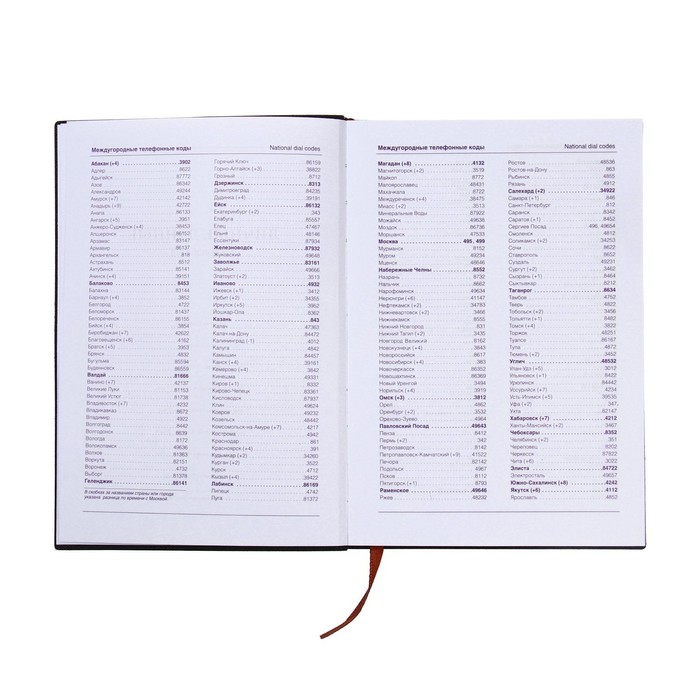 Междугородные телефонные коды National dial codes
Абакан (+4) 3902
Адлер 8622
Адыгейск 87772
Азов 86342
Александров 49244
Амурск (+7) 42142
Анадырь (+9) 42722
Анапа 86133
Ангарск (+5) 3951
Анжеро-Судженск (+4) 38453
Апшеронск 86152
Арзамас 83147
Армавир 86137
Архангельск 818
Астрахань 8512
Ахтубинск 85141
Ачинск (+4) 39151
Балаково 8453
Балахна 83144
Барнаул (+4) 3852
Белгород 4722
Беломорск 81437
Белореченск 86155
Бийск (+4) 3854
Биробиджан (+7) 42622
Благовещенск (+6) 4162
Братск (+5) 3953
Брянск 4832
Бугульма 85594
Буденновск 86559
Валдай 81666
Ванино (+7) 42137
Великие Луки 81153
Великий Устюг 81738
Владивосток (+7) 4232
Владикавказ 8672
Владимир 4922
Волгоград 8442
Волгодонск 8639
Вологда 8172
Волоколамск 49636
Волхов 81363
Воркута 82151
Воронеж 4732
Выборг 81378
Геленджик 86141
В скобках за названием страны или города
указана разница по времени с Москвой
Горячий Ключ 86159
Горно-Алтайск (+3) 38822
Грозный 8712
Дзержинск 8313
Димитровград 84235
Дудинка (+4) 39191
Ейск 86132
Екатеринбург (+2) 343
Елабуга 85557
Елец 47467
Ельня 48146
Ессентуки 87934
Железноводск 87932
Жуковский 49648
Заволжье 83161
Зарайск 49666
Златоуст (+2) 3513
Иваново 4932
Ижевск (+1) 3412
Ирбит (+2) 34355
Иркутск (+5) 3952
Йошкар-Ола 8362
Казань 843
Калач 47363
Калач-на-Дону 84472
Калининград (-1) 4012
Калуга 4842
Камышин 84457
Канск (+4) 39161
Кемерово (+4) 3842
Кинешма 49331
Киров (+1) 8332
Кирово-Чепецк 83361
Кисловодск 87937
Клин 49624
Ковров 49232
Козельск 48442
Комсомольск-на-Амуре (+7) 4217
Кострома 4942
Краснодар 861
Красноярск (+4) 391
Кудымкар (+2) 34260
Курган (+2) 3522
Курск 4712
Кызыл (+4) 39422
Лабинск 86169
Липецк 4742
Луга 81372
Междугородные телефонные коды National dial codes
Магадан (+8) 4132
Магнитогорск (+2) 3519
Майкоп 8772
Малоярославец 48431
Махачкала 8722
Междуреченск (+4) 38475
Миасс (+2) 3513
Минеральные Воды 87922
Можайск 49638
Моздок 86736
Моршанск 47533
Москва 495, 499
Мурманск 8152
Муром 49234
Мценск 48646
Набережные Челны 8552
Назрань 8732
Нальчик 8662
Нарофоминск 49634
Нерюнгри (+6) 41147
Нефтекамск (+2) 34783
Нижневартовск (+2) 3466
Нижнекамск 8555
Нижний Новгород 831
Нижний Тагил (+2) 3435
Новгород Великий 8162
Новокузнецк (+4) 3843
Новороссийск 8617
Новосибирск (+4) 383
Новочеркасск 86352
Новошахтинск 86369
Новый Уренгой 3494
Норильск (+4) 3919
Омск (+3) 3812
Орел 4862
Оренбург (+2) 3532
Орехово-Зуево 4964
Павловский Посад 49643
Пенза 8412
Пермь (+2) 342
Петрозаводск 8142
Петропавловск-Камчатский (+9) 41522
Печора 82142
Подольск 4967
Псков 8112
Пятигорск (+1) 8793
Раменское 49646
Ржев 48232
Ростов 48536
Ростов-на-Дону 863
Рыбинск 4855
Рязань 4912
Салехард (+2) 34922
Самара (+1) 846
Санкт-Петербург 812
Саранск 8342
Саратов (+1) 8452
Сергиев Посад 496, 49654
Смоленск 4812
Соликамск (+2) 34253
Сочи 8622
Ставрополь 8652
Суздаль 49231
Сургут (+2) 3462
Сызрань (+1) 8464
Сыктывкар 8212
Таганрог 8634
Тамбов 4752
Тверь 4822
Тобольск (+2) 3456
Тольятти (+1) 8482
Томск (+4) 3822
Торжок 48251
Туапсе 86167
Тула 4872
Тюмень (+2) 3452
Углич 48532
Улан-Удэ (+5) 3012
Ульяновск (+1) 8422
Урюпинск 84442
Уссурийск (+7) 4234
Усть-Илимск (+5) 39535
Уфа (+2) 347
Ухта 82147
Хабаровск (+7) 4212
Ханты-Мансийск (+2) 3467
Чебоксары 8352
Челябинск (+2) 351
Череповец 8202
Черкесск 87822
Чита (+6) 3022
Элиста 84722
Электросталь 49657
Южно-Сахалинск (+8) 4242
Якутск (+6) 4112
Ярославль 4852